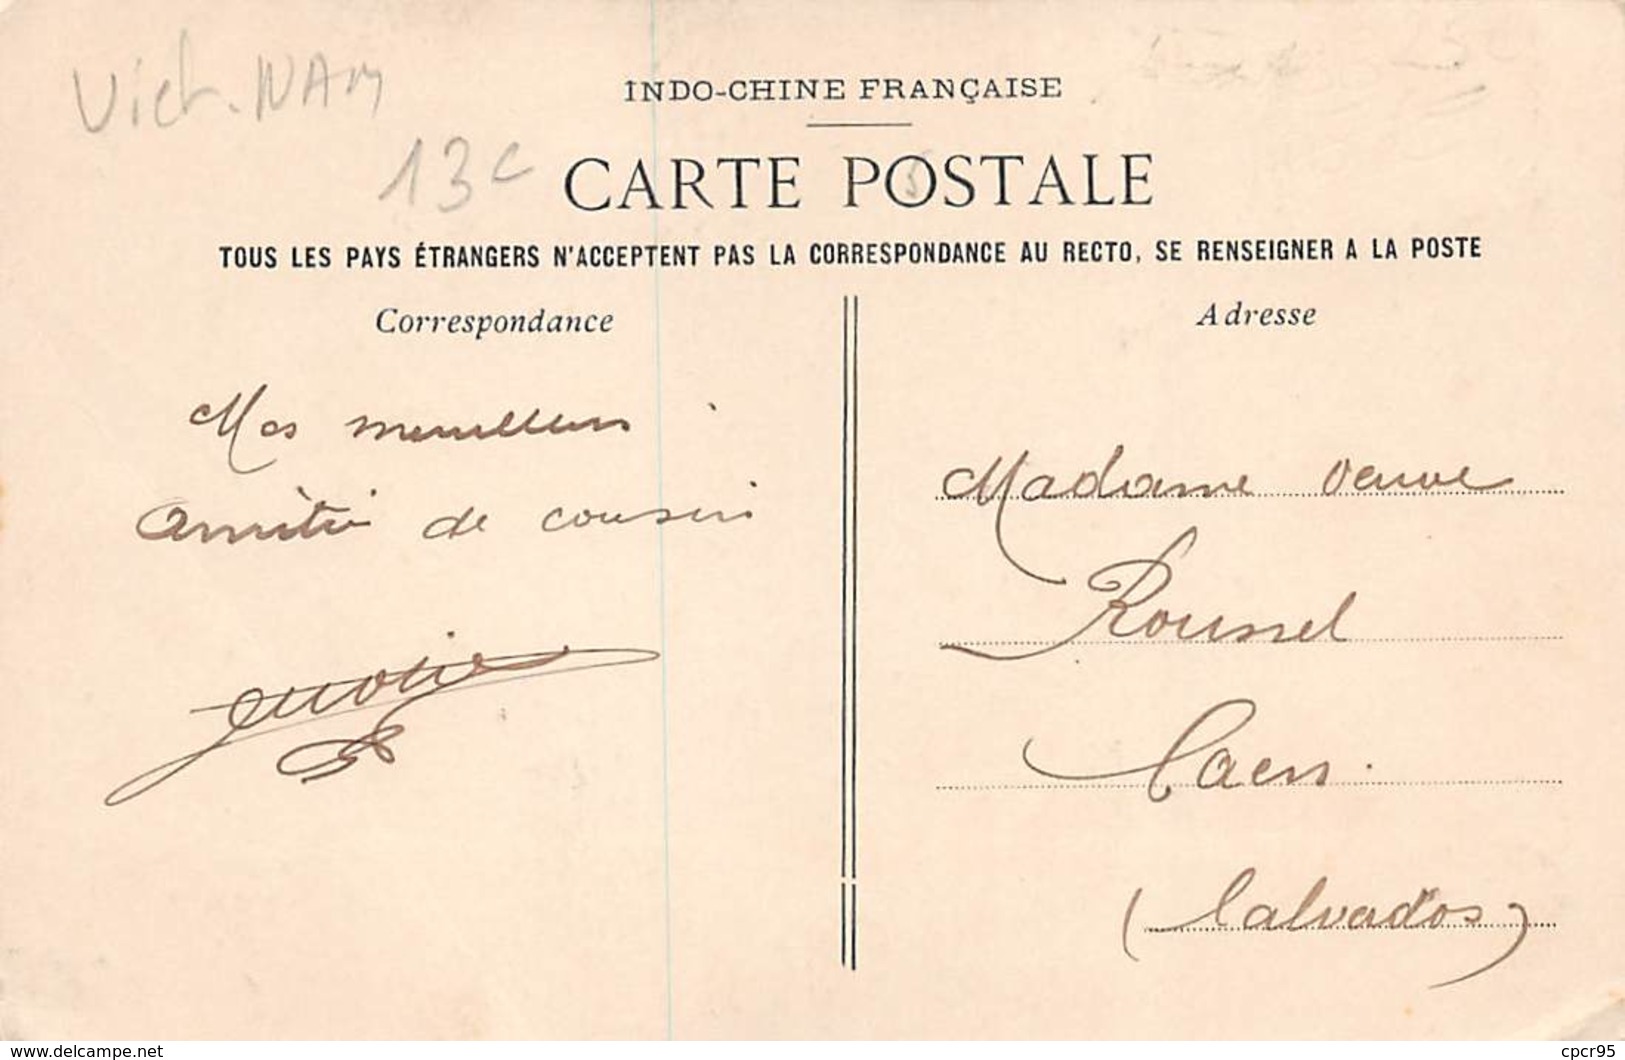 Viet-NAM
13c
INDO-CHINE FRANÇAISE
CARTE POSTALE
TOUS LES PAYS ÉTRANGERS N'ACCEPTENT PAS LA CORRESPONDANCE AU RECTO, SE RENSEIGNER A LA POSTE
Correspondance
Mes meilleurs
Amitié de cousin
Adresse
Madame veuve
Roussel
Caen.
(Calvados)
www.delcampe.net
cpcr95